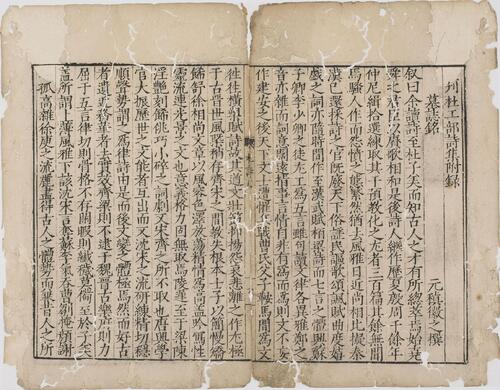 刋杜工部詩集附錄
墓誌銘
元稹微之撰
叙曰余讀詩至杜子美而知古人之才有所緫萃焉始堯
舜之君臣以賡歌相和是後詩人繼作歷夏殷周千餘年
仲尼緝拾選練取其干預教化之尤者三百篇其餘無聞
焉騷人作而怨憤之態繁然猶去風雅日近尚相比擬秦
漢已還採詩之官旣廢天下俗謡民謳歌頌諷賦曲度嬉
戲之詞亦隨時間作至漢武賦栢梁詩而七言之體興蘇
子卿李少卿之徒尤工爲五言雖句讀文律各異雅鄭之
音亦雜而詞意闊遠指事言情自非有爲而爲則文不妄
作建安之後天下文士遭罹兵戰曹氏父子鞍馬間爲文
徃徃橫槊賦詩故其遒文壯節抑揚怨哀悲離之作尤極
于古晉世風槩稍存宋齊之間教失根本士子以簡慢矯
飾舒徐相尚文章以風容色澤放蕩精淸爲高盖吟冩性
靈流連光景之文也意義格力固無取焉陵遲至于梁陳
淫艶刻飾佻巧小碎之詞劇又宋齊之所不取也唐興學
官大振歷世之文能者互出而又沈宋之流研練精切穩
順聲勢謂之爲律詩由是而後文變之體極焉然而好古
者遺近務華者去實效齊梁則不逮于魏晉工樂府則力
屈于五言律切則骨格不存閑暇則纖穠莫備至於子美
盖所謂上薄風雅下該沈宋言奪蘇李氣吞曹劉掩顔謝之
孤高雜徐庾之流麗盡得古人之體勢而兼昔人之所